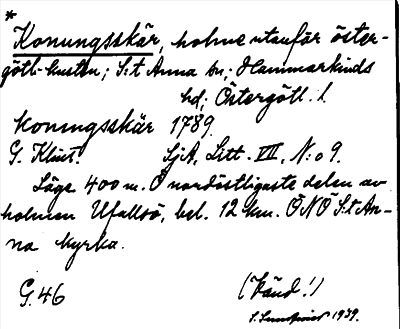 *
Konungsskär, holme utanför öster-
götl. kusten; S:t Anna sn; Hammarkinds
hd; Östergötl. l.
Konungsskär 1789.
G. Klint. SjA, Litt. VII, N:o 9.
Läge 400 m. O nordöstligaste delen av
holmen Ufallsö, bel. 12 km. ÖNÖ S:t An-
na kyrka.
G. 46 (Känd!)
S. 1939.